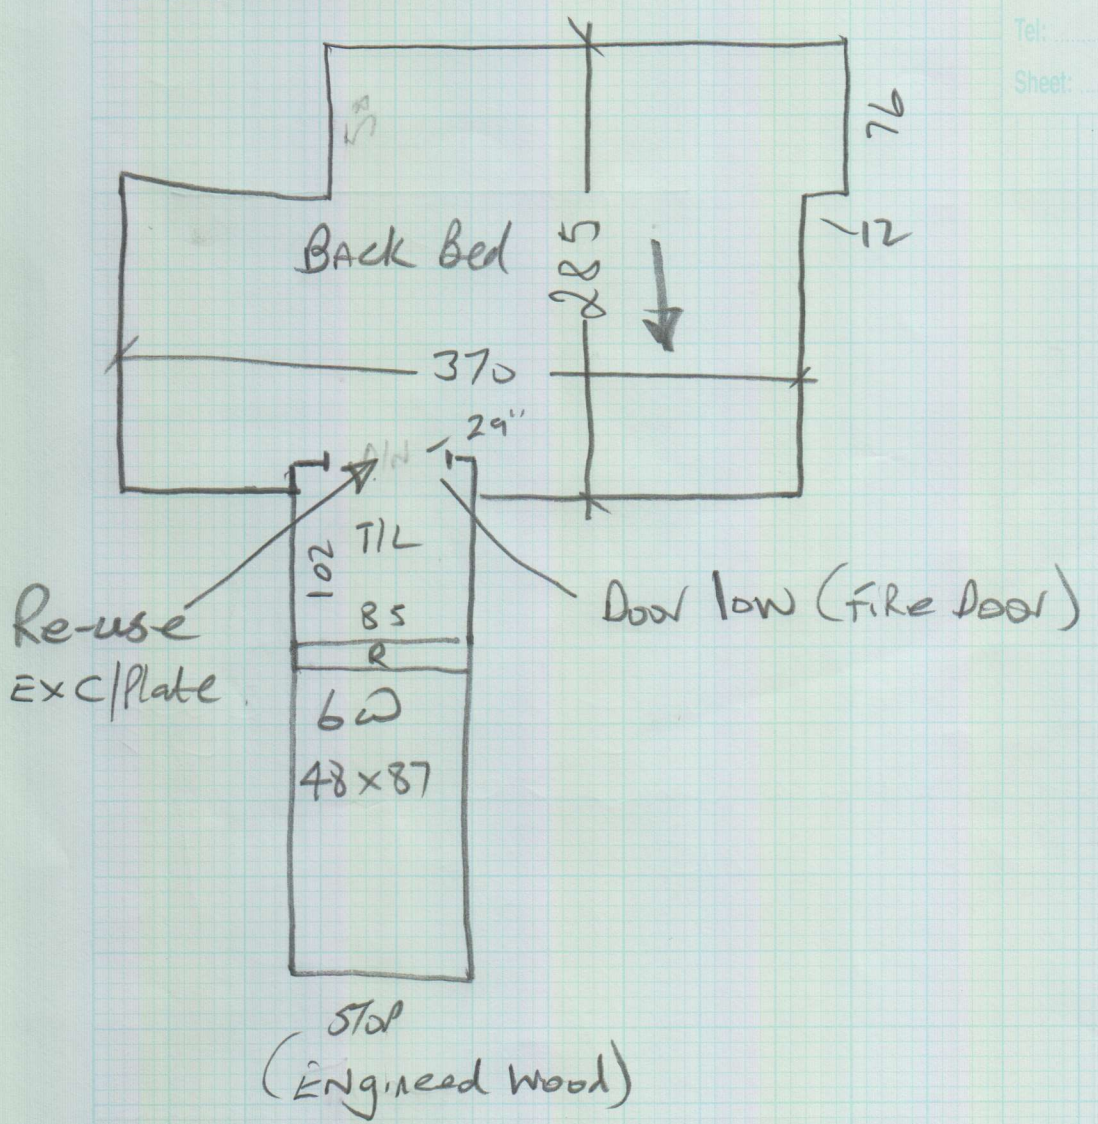 Tel:
Sheet:
58
76
12
BACK Bed
285
370
29"
T/L
102
85
R
Re-use
EX C/Plate
Door low (FiRe Door)
6W
48x87
STOP
(ENgineed Wood)